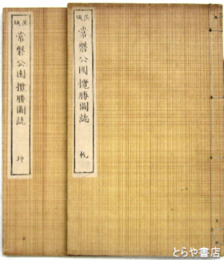 茨城
常磐公園攬勝圖誌
乾
茨城
常磐公園攬勝圖誌
坤
© とらや書店